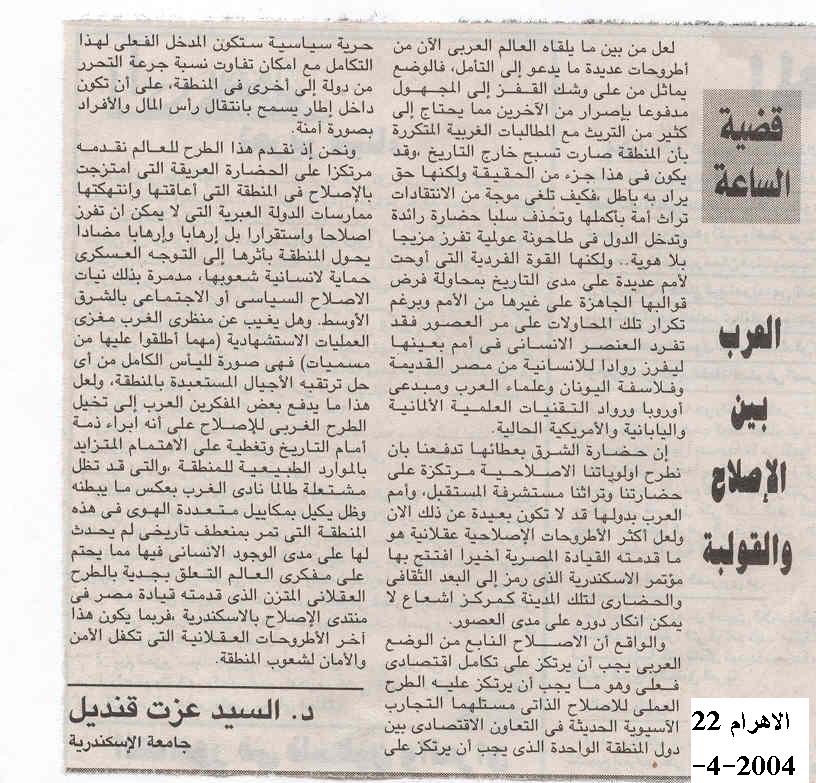 قضية
الساعة
العرب
بين
الإصلاح
والقولبة
لعل من بين ما يلقاه العالم العربى الآن من
أطروحات عديدة ما يدعو إلى التأمل، فالوضع
يماثل من على وشك القفز إلى المجهول
مدفوعا بإصرار من الآخرين مما يحتاج إلى
كثير من التريث مع المطالبات الغربية المتكررة
بأن المنطقة صارت تسبح خارج التاريخ ،وقد
يكون فى هذا جزء من الحقيقة ولكنها حق
يراد به باطل ،فكيف تلغى موجة من الانتقادات
تراث أمة بأكملها وتحذف سلبا حضارة رائدة
وتدخل الدول فى طاحونة عولية تفرز مزيجا
بلا هوية.. ولكنها القوة الفردية التى أوحت
لأمم عديدة على مدى التاريخ بمحاولة فرض
قوالبها الجاهزة على غيرها من الأمم وبرغم
تكرار تلك المحاولات على مر العصور فقد
تفرد العنصر الانسانى فى أمم بعينها
ليفرز روادا للانسانية من مصر القديمة
وفلاسفة اليونان وعلماء العرب ومبدعى
أوروبا ورواد التقنيات العلمية الألمانية
واليابانية والأمريكية الحالية.
إن حضارة الشرق بعطائها تدفعنا بان
نطرح اولوياتنا الاصلاحية مرتكزة على
حضارتنا وتراثنا مستشرفة المستقبل، وأمم
العرب بدولها قد لا تكون بعيدة عن ذلك الان
ولعل أكثر الأطروحات الإصلاحية عقلانية هو
ما قدمته القيادة المصرية أخيرا افتتح بها
مؤتمر الاسكندرية الذى رمز إلى البعد الثقافى
والحضارى لتلك المدينة كمركز اشعاع لا
يمكن انكار دوره على مدى العصور.
والواقع أن الاصلاح النابع من الوضع
العربى يجب أن يرتكز على تكامل اقتصادى
فعلى وهو ما يجب أن يرتكز عليه الطرح
العملى للاصلاح الذاتى مستلهما التجارب
الآسيوية الحديثة فى التعاون الاقتصادى بين
دول المنطقة الواحدة الذى يجب أن يرتكز على
حرية سياسية ستكون المدخل الفعلى لهذا
التكامل مع امكان تفاوت نسبة جرعة التحرر
من دولة إلى أخرى فى المنطقة، على أن تكون
داخل إطار يسمح بانتقال رأس المال والأفراد
بصورة آمنة.
ونحن إذ نقدم هذا الطرح للعالم نقدمه
مرتكزا على الحضارة العريقة التى امتزجت
بالإصلاح فى المنطقة التى أعاقتها وإنتهكتها
ممارسات الدولة العبرية التى لا يمكن ان تفرز
اصلاحا واستقرارا بل إرهابا وإرهابا مضادا
يحول المنطقة بأثرها إلى التوجه العسكرى
حماية لانسانية شعوبها، مدمرة بذلك نيات
الاصلاح السياسى أو الاجتماعى بالشرق
الأوسط. وهل يغيب عن منظرى الغرب مغزى
العمليات الاستشهادية (مهما أطلقوا عليها من
مسميات) فهى صورة لليأس الكامل من أى
حل ترتقبه الأجيال المستعبدة بالمنطقة، ولعل
هذا ما يدفع بعض المفكرين العرب إلى تخيل
الطرح الغربى للإصلاح على أنه إبراء ذمة
أمام التاريخ وتغطية على الاهتمام المتزايد
بالموارد الطبيعية للمنطقة ،والتى قد تظل
مشتعلة طالما نادى الغرب بعكس ما يبطنه
وظل يكيل بمكاييل متعددة الهوى فى هذه
المنطقة التى تمر بمنعطف تاريخى لم يحدث
لها على مدى الوجود الانسانى فيها مما يحتم
على مفكرى العالم التعلق بجدية بالطرح
العقلانى المتزن الذى قدمته قيادة مصر فى
منتدى الإصلاح بالاسكندرية ،فربما يكون هذا
آخر الأطروحات العقلانية التى تكفل الأمن
والأمان لشعوب المنطقة.
د. السيد عزت قنديل
جامعة الإسكندرية
الاهرام 22
-4-2004